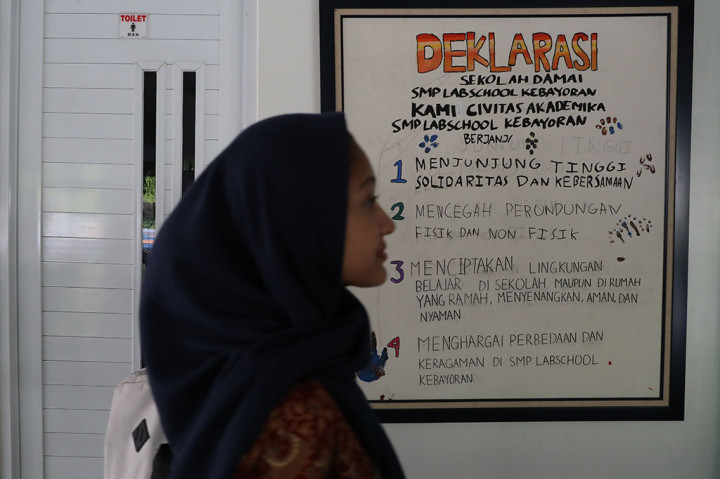 TOILET
MAN
DEKLARASI
SEKOLAH DAMAI
SMP LABSCHOOL KEBAYORAN
KAMI CIVITAS AKADEMIKA
SMP LABSCHOOL KEBAYORAN
BERJANJI
1 MENJUNJUNG TINGGI
SOLIDARITAS DAN KEBERSAMAAN
2 MENCEGAH PERUNDUNGAN
FISIK DAN NON FISIK
3 MENCIPTAKAN LINGKUNGAN
BELAJAR DI SEKOLAH MAUPUN DI RUMAH
YANG RAMAH, MENYENANGKAN, AMAN, DAN
NYAMAN
4 MENGHARGAI PERBEDAAN DAN
KERAGAMAN DI SMP LABSCHOOL
KEBAYORAN